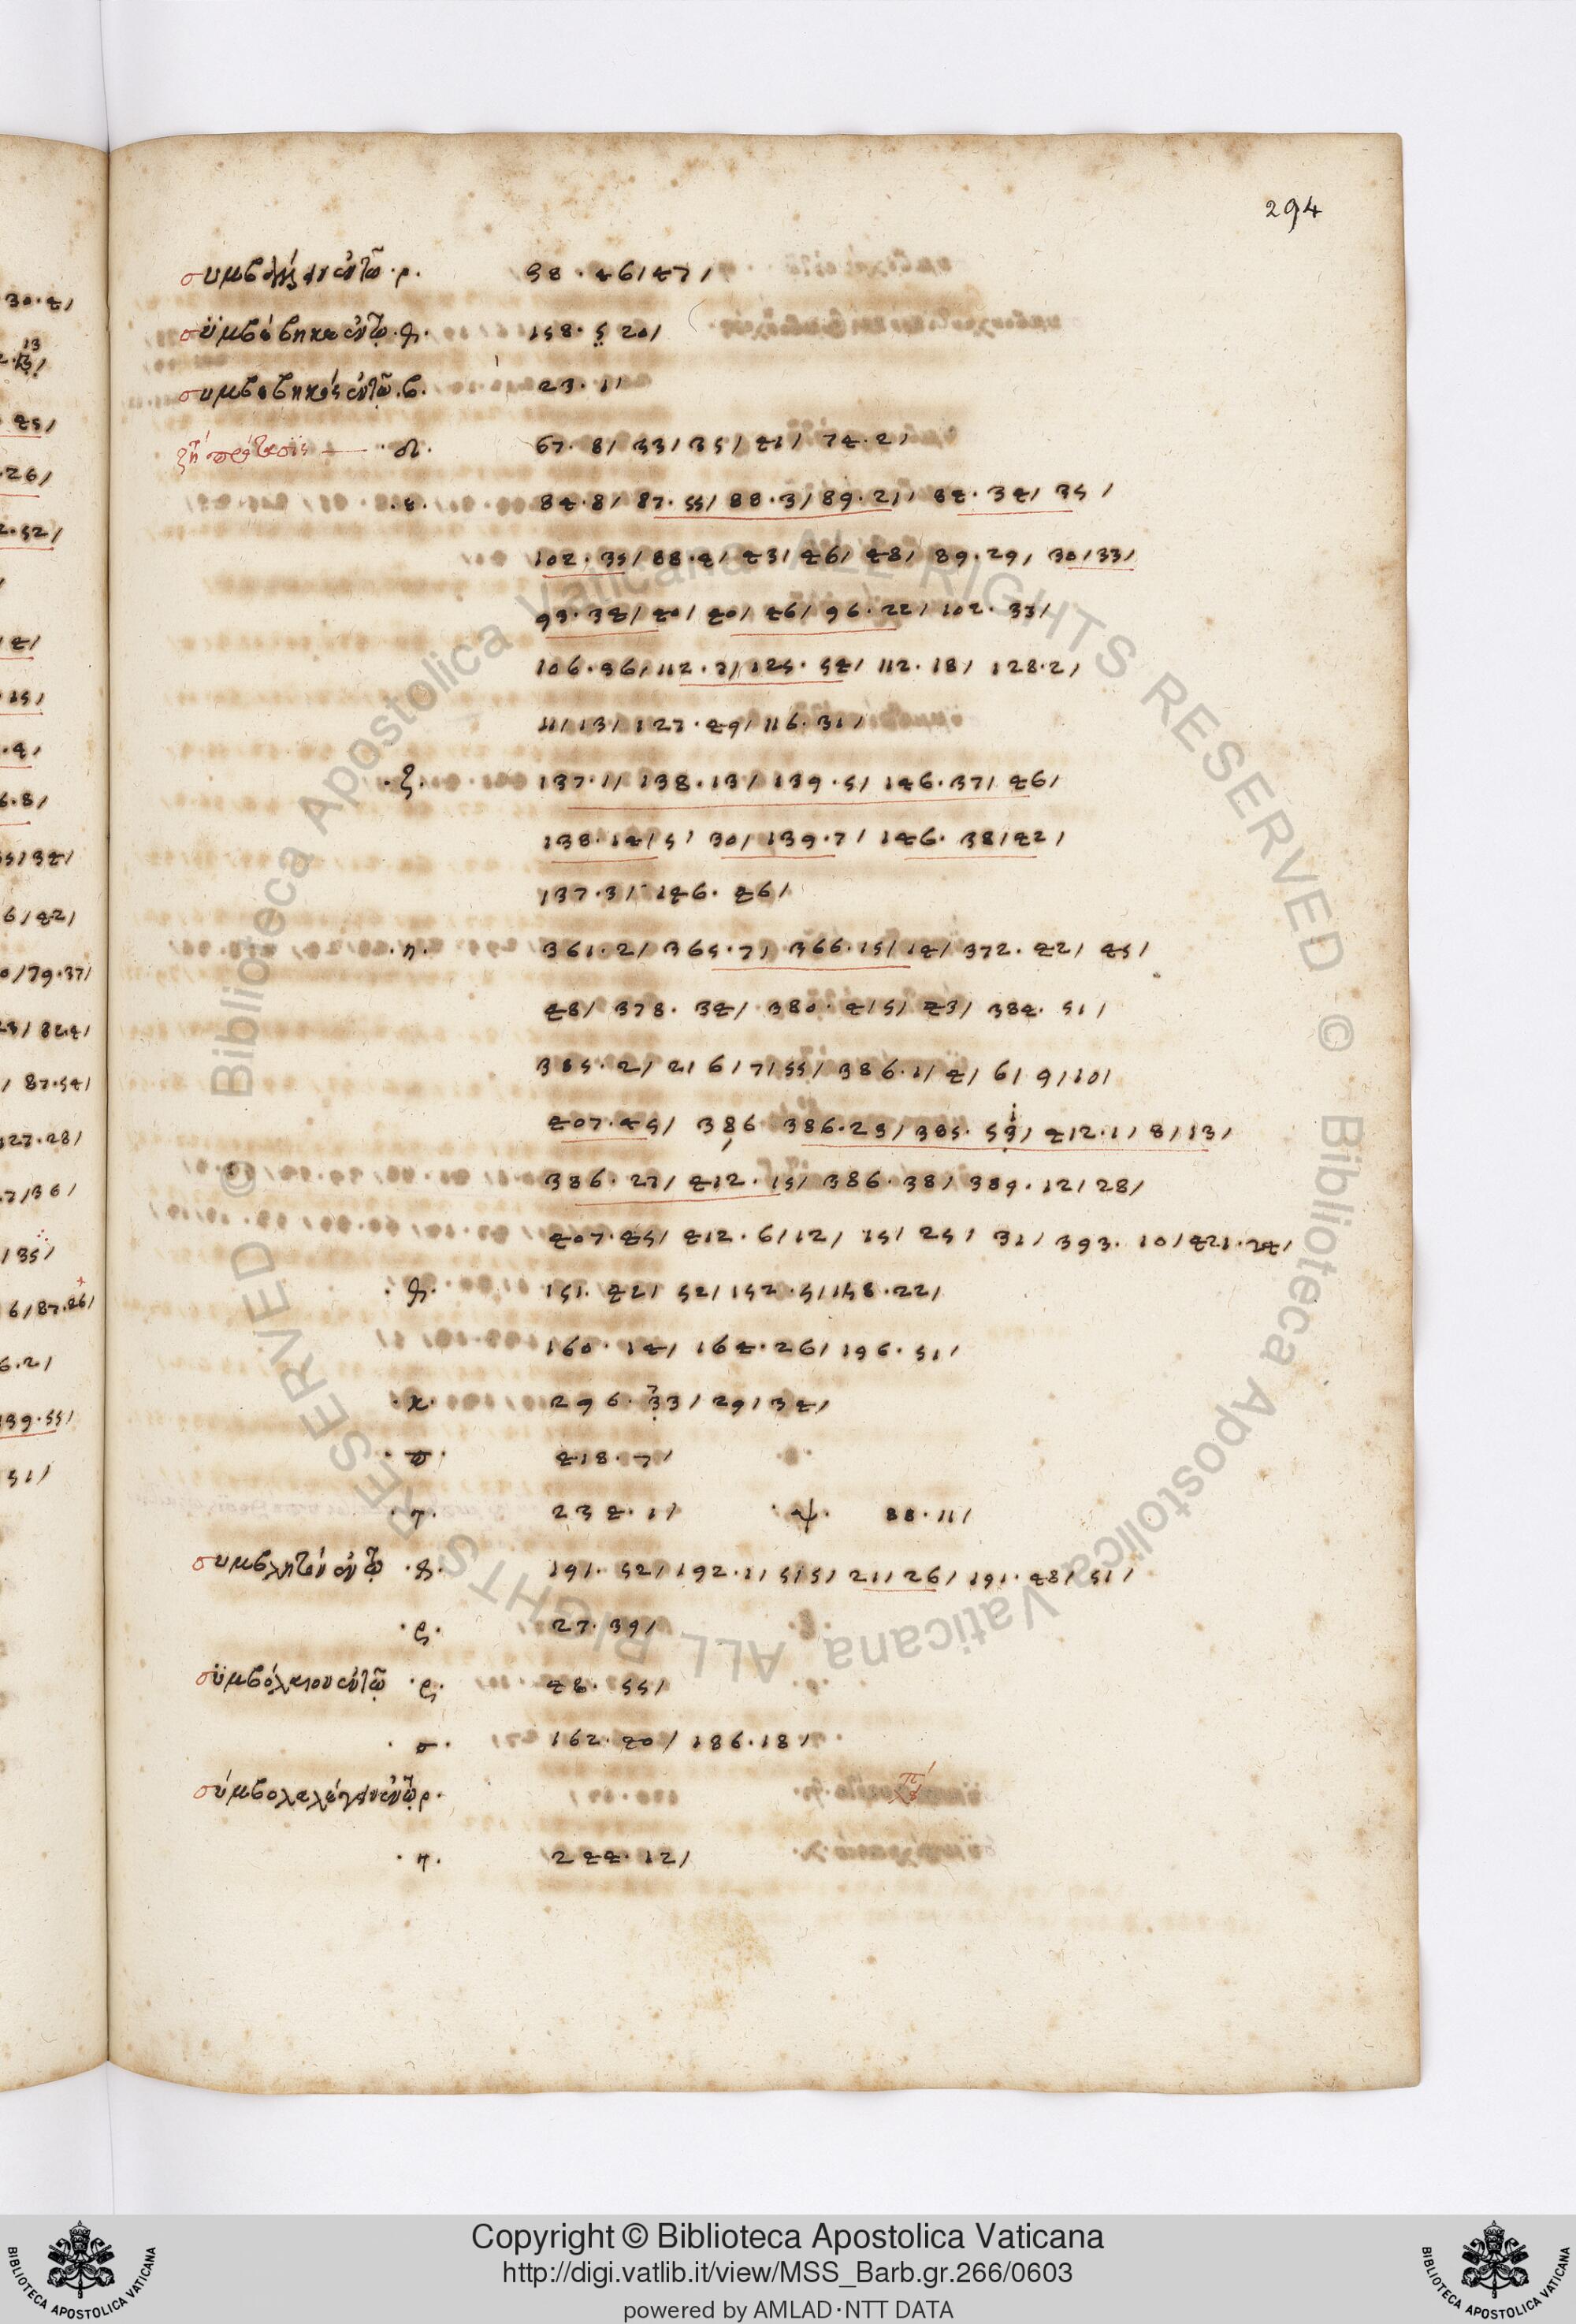 294
98 · 46/47/
συμβέβηκε ἐν τῷ · θ · 158 · 5 20/
συμβεβηκὸς ἐν τῷ · β · 23 · 1/
ζή πρότασις — · δ · 67 · 8/ 33/ 35/ 41/ 74 · 2/
· ε · 84 · 8/ 87 · 55/ 88 · 3/ 89 · 21/ 84 · 34/ 35/
102 · 35/ 88 · 4/ 43/ 46/ 48/ 89 · 29/ 30/ 33/
93 · 34/ 40/ 40/ 46/ 96 · 22/ 102 · 33/
106 · 36/ 112 · 7/ 125 · 54/ 112 · 18/ 128 · 2/
11/ 13/ 127 · 49/ 116 · 31/
· ζ · 137 · 1/ 138 · 13/ 139 · 5/ 146 · 37/ 46/
138 · 14/ 5/ 30/ 139 · 7/ 146 · 38/ 42/
137 · 3/ 146 · 46/
· η · 361 · 2/ 365 · 7/ 366 · 15/ 14/ 372 · 42/ 45/
48/ 378 · 34/ 380 · 4/ 5/ 43/ 384 · 51/
385 · 2/ 2/ 6/ 7/ 55/ 386 · 1/ 4/ 6/ 9/ 10/
407 · 45/ 386 386 · 23/ 385 · 53/ 412 · 1/ 8/ 13/
386 · 27/ 412 · 15/ 386 · 38/ 389 · 12/ 28/
407 · 45/ 412 · 6/ 12/ 15/ 25/ 31/ 393 · 10/ 421 · 24/
· θ · 151 · 42/ 52/ 152 · 5/ 158 · 22/
160 · 14/ 164 · 26/ 196 · 51/
· κ · 296 · 33/ 29/ 34/
418 · 7/
· τ · 234 · 1/ · ψ · 88 · 11/
συμβλητὸν ἐν τῷ · θ · 191 · 52/ 192 · 1/ 5/ 5/ 21/ 26/ 191 · 48/ 51/
· ς · 27 · 39/
συμβόλαιον ἐν τῷ · ς · 48 · 55/
· σ · 162 · 40/ 186 · 18/
ἐν τῷ ρ ·
· η · 244 · 12/
Copyright © Biblioteca Apostolica Vaticana
http://digi.vatlib.it/view/MSS_Barb.gr.266/0603
powered by AMLAD·NTT DATA